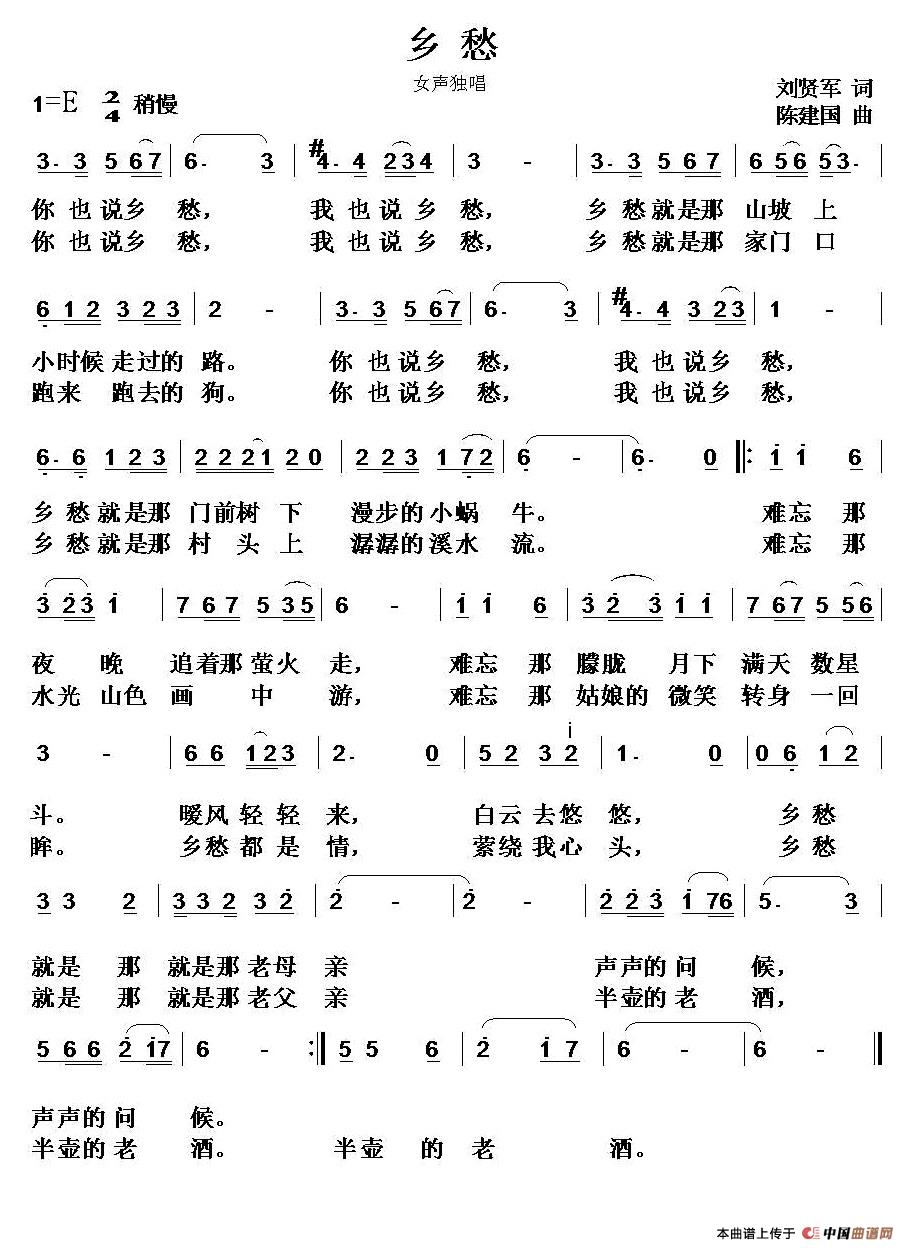 乡 愁
女声独唱
1=E 2/4 稍慢
刘贤军 词
陈建国 曲
3. 3 5 6 7 | 6. 3 | #4. 4 2 3 4 | 3 - | 3. 3 5 6 7 | 6 5 6 5 3. |
你 也 说 乡 愁， 我 也 说 乡 愁， 乡 愁 就 是 那 山 坡 上
你 也 说 乡 愁， 我 也 说 乡 愁， 乡 愁 就 是 那 家 门 口
6 1 2 3 2 3 | 2 - | 3. 3 5 6 7 | 6. 3 | #4. 4 3 2 3 | 1 - |
小时候 走过的 路。 你 也 说 乡 愁， 我 也 说 乡 愁，
跑来 跑去的 狗。 你 也 说 乡 愁， 我 也 说 乡 愁，
6. 6 1 2 3 | 2 2 2 1 2 0 | 2 2 3 1 7 2 | 6 - | 6. 0 ‖: i i 6 |
乡 愁 就 是 那 门前树 下 漫步的 小蜗 牛。 难忘 那
乡 愁 就 是 那 村 头 上 潺潺的 溪水 流。 难忘 那
3 2 3 i | 7 6 7 5 3 5 | 6 - | i i 6 | 3 2 3 i i | 7 6 7 5 5 6 |
夜 晚 追着那 萤火 走， 难忘 那 朦胧 月下 满天 数星
水光 山色 画 中 游， 难忘 那 姑娘的 微笑 转身 一回
3 - | 6 6 1 2 3 | 2. 0 | 5 2 3 2 i | 1. 0 | 0 6 1 2 |
斗。 暖风 轻 轻 来， 白云 去悠 悠， 乡愁
眸。 乡愁 都 是 情， 萦绕 我心 头， 乡愁
3 3 2 | 3 3 2 3 2 | 2 - | 2 - | 2 2 3 i 7 6 | 5. 3 |
就是 那 就是那 老母 亲 声声的 问 候，
就是 那 就是那 老父 亲 半壶的 老 酒，
5 6 6 2 i 7 | 6 - :‖ 5 5 6 | 2 i 7 | 6 - | 6 - ‖
声声的 问 候。
半壶的 老 酒。 半壶 的 老 酒。
本曲谱上传于 中国曲谱网